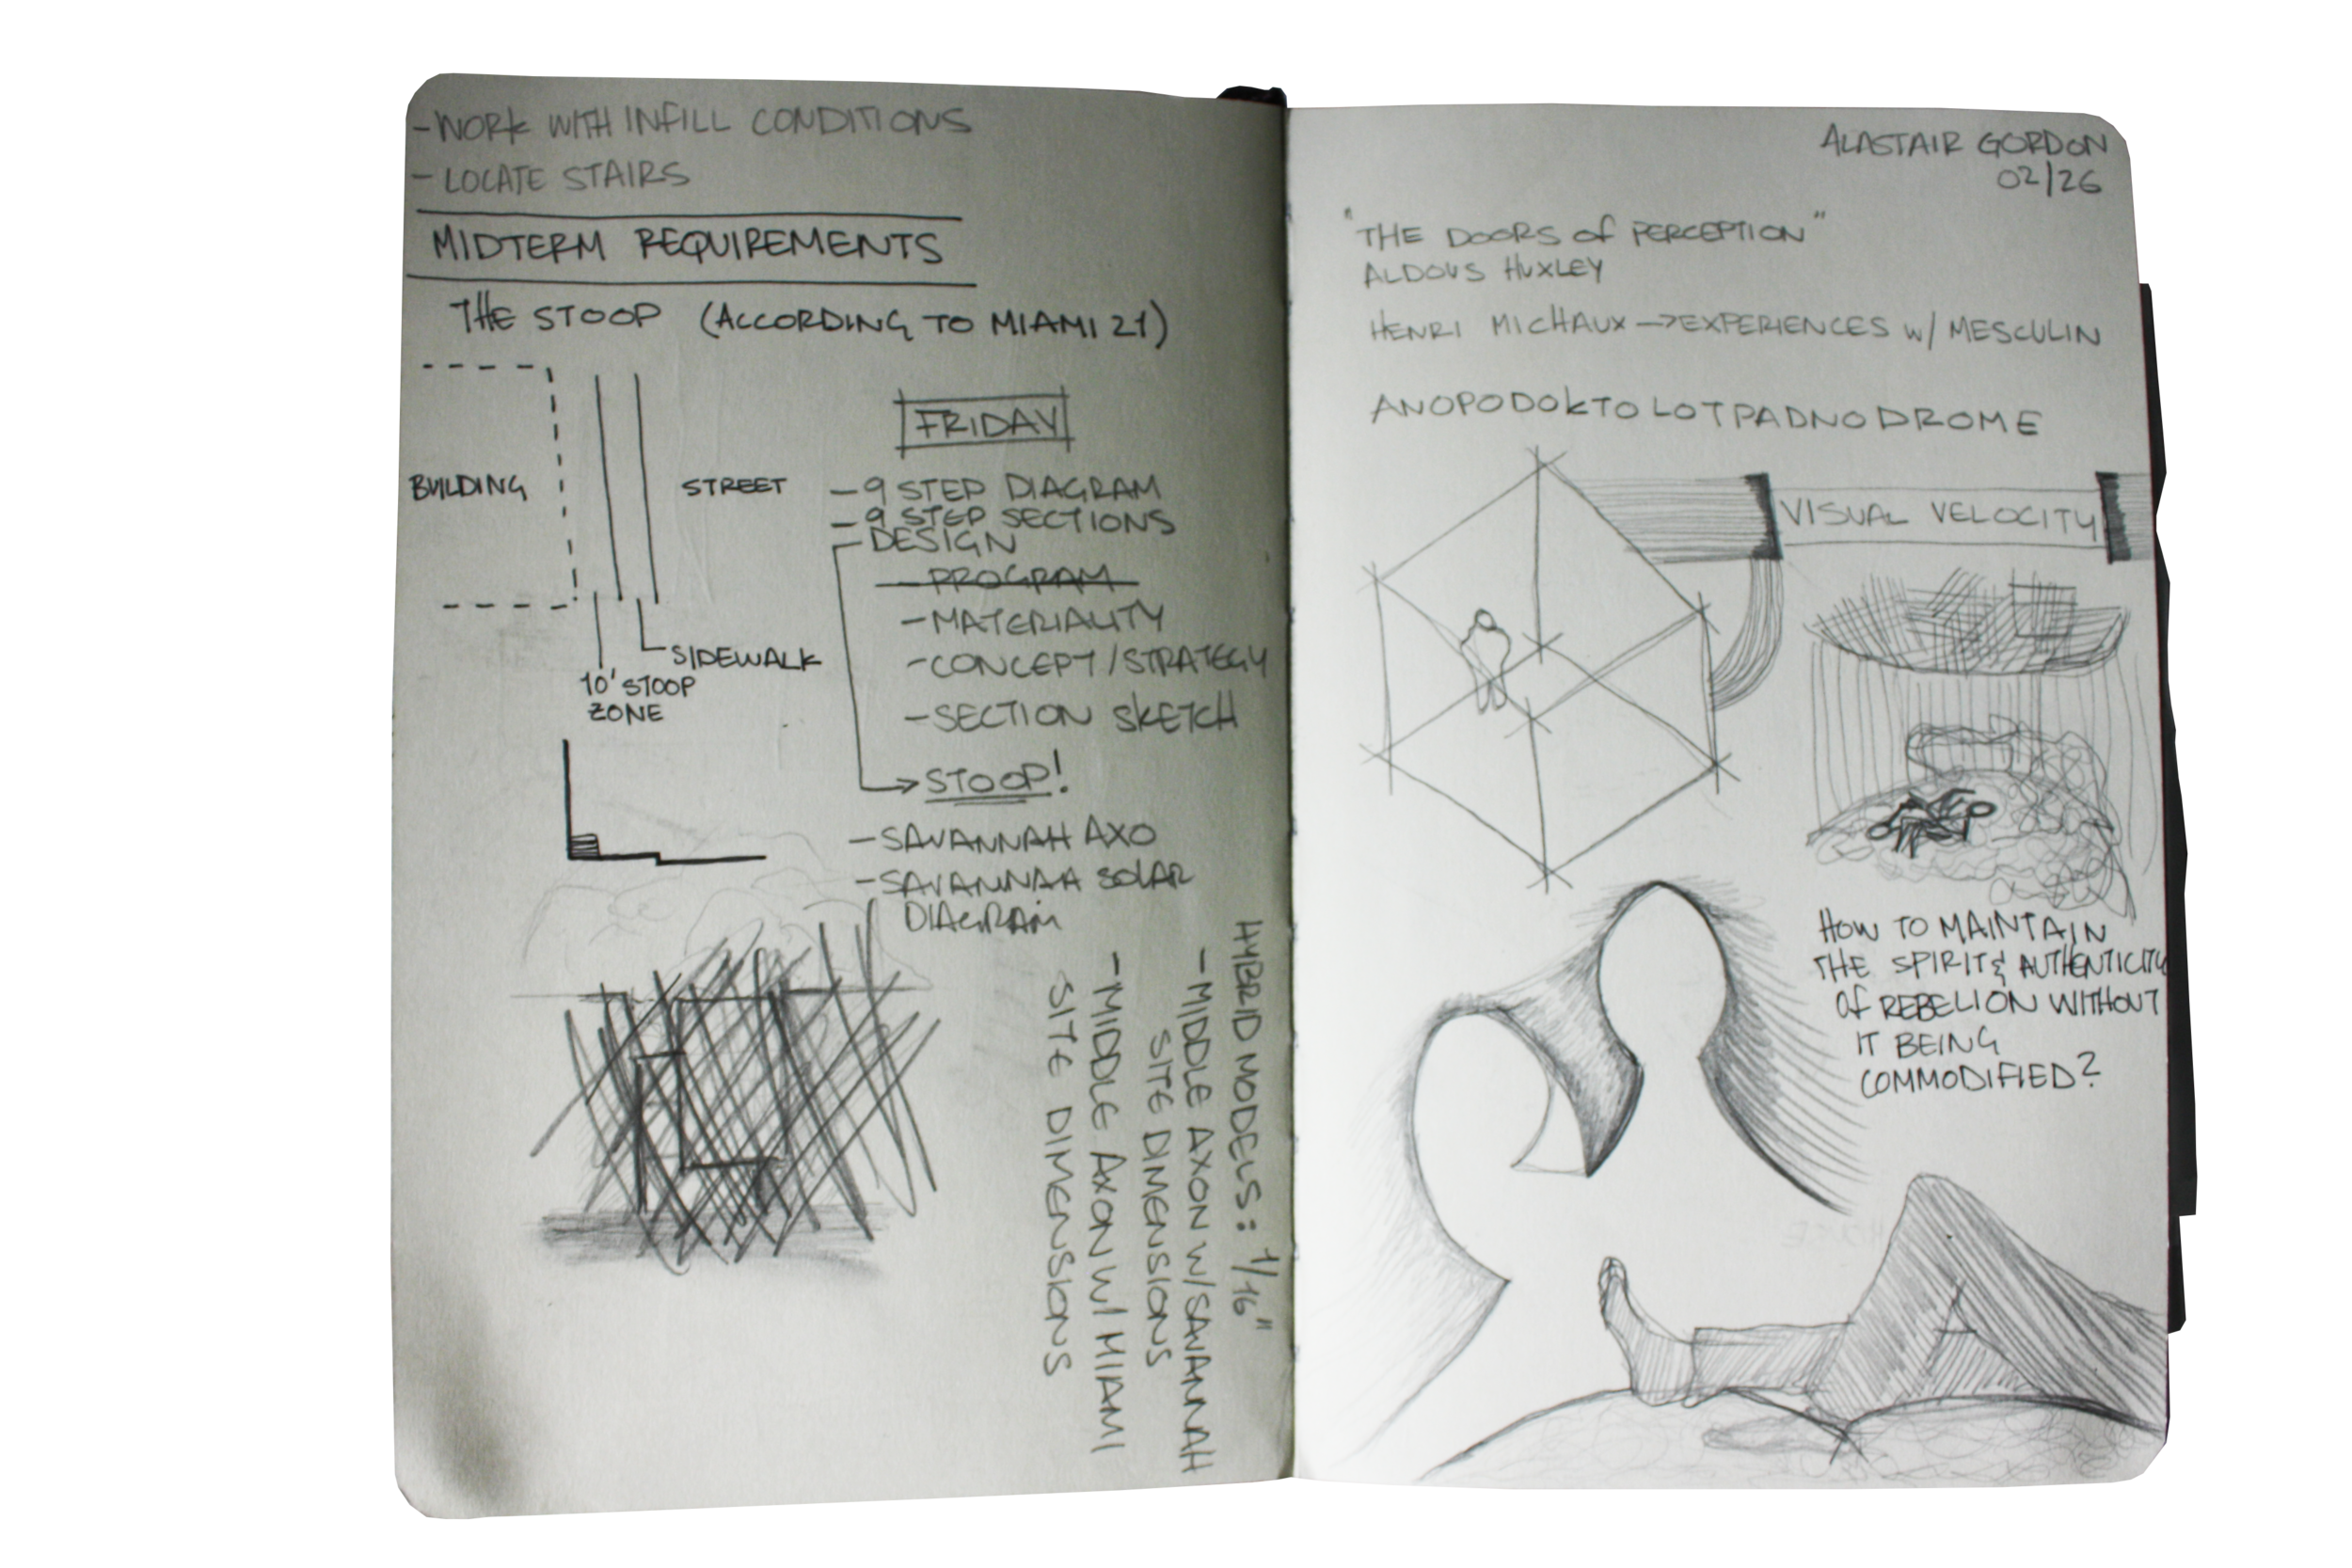 -WORK WITH INFILL CONDITIONS
- LOCATE STAIRS
MIDTERM REQUIREMENTS
THE STOOP (ACCORDING TO MIAMI 21)
BUILDING
STREET
SIDEWALK
10' STOOP
ZONE
FRIDAY
- 9 STEP DIAGRAM
- 9 STEP SECTIONS
- DESIGN
- PROGRAM
- MATERIALITY
- CONCEPT/STRATEGY
- SECTION SKETCH
STOOP!
- SAVANNAH AXO
- SAVANNAH SOLAR
DIAGRAM
HYBRID MODELS: 1/16"
- MIDDLE AXON W/ SAVANNAH
SITE DIMENSIONS
- MIDDLE AXON W/ MIAMI
SITE DIMENSIONS
ALASTAIR GORDON
02/26
"THE DOORS of PERCEPTION"
ALDOUS HUXLEY
HENRI MICHAUX → EXPERIENCES W/ MESCULIN
ANOPODOKTOLOTPADNODROME
VISUAL VELOCITY
HOW TO MAINTAIN
THE SPIRIT & AUTHENTICITY
of REBELION WITHOUT
IT BEING
COMMODIFIED?